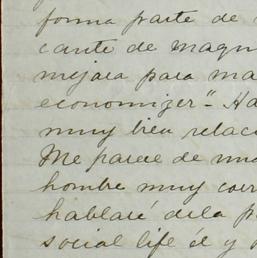 forma parte de
cante de maqui
mejara para ma
economizer". Ha
muy bien relac
Me parece de mu
hombre muy corr
hablaré de la p
social life él y